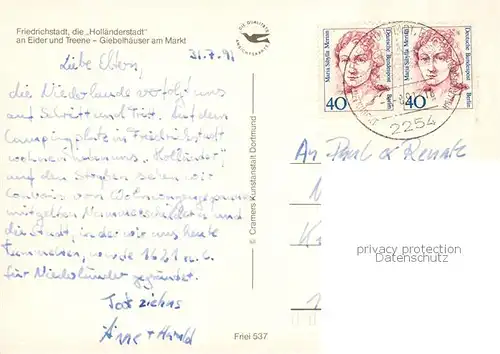 Friedrichstadt, die „Holländerstadt"
an Eider und Treene – Giebelhäuser am Markt
31.7.91
Liebe Eltern,
die Niederlande verfolgt uns
auf Schritt und Tritt. Auf dem
Campingplatz in Friedrichstadt
wohnen neben uns „Holländer"
auf den Straßen sehen wir
mit gelben Nummernschildern und
die Stadt, in der wir uns heute
wurde 1621 n. C.
für Niederländer gegründet.
Anne + Harald
© Cramers Kunstanstalt Dortmund
Friei 537
DIE QUALITÄTS
ANSICHTSKARTE
Maria Sibylla Merian
Deutsche Bundespost
Berlin
40
Maria Sibylla Merian
Deutsche Bundespost
Berlin
40
2254
An Paul & Renate
privacy protection
Datenschutz